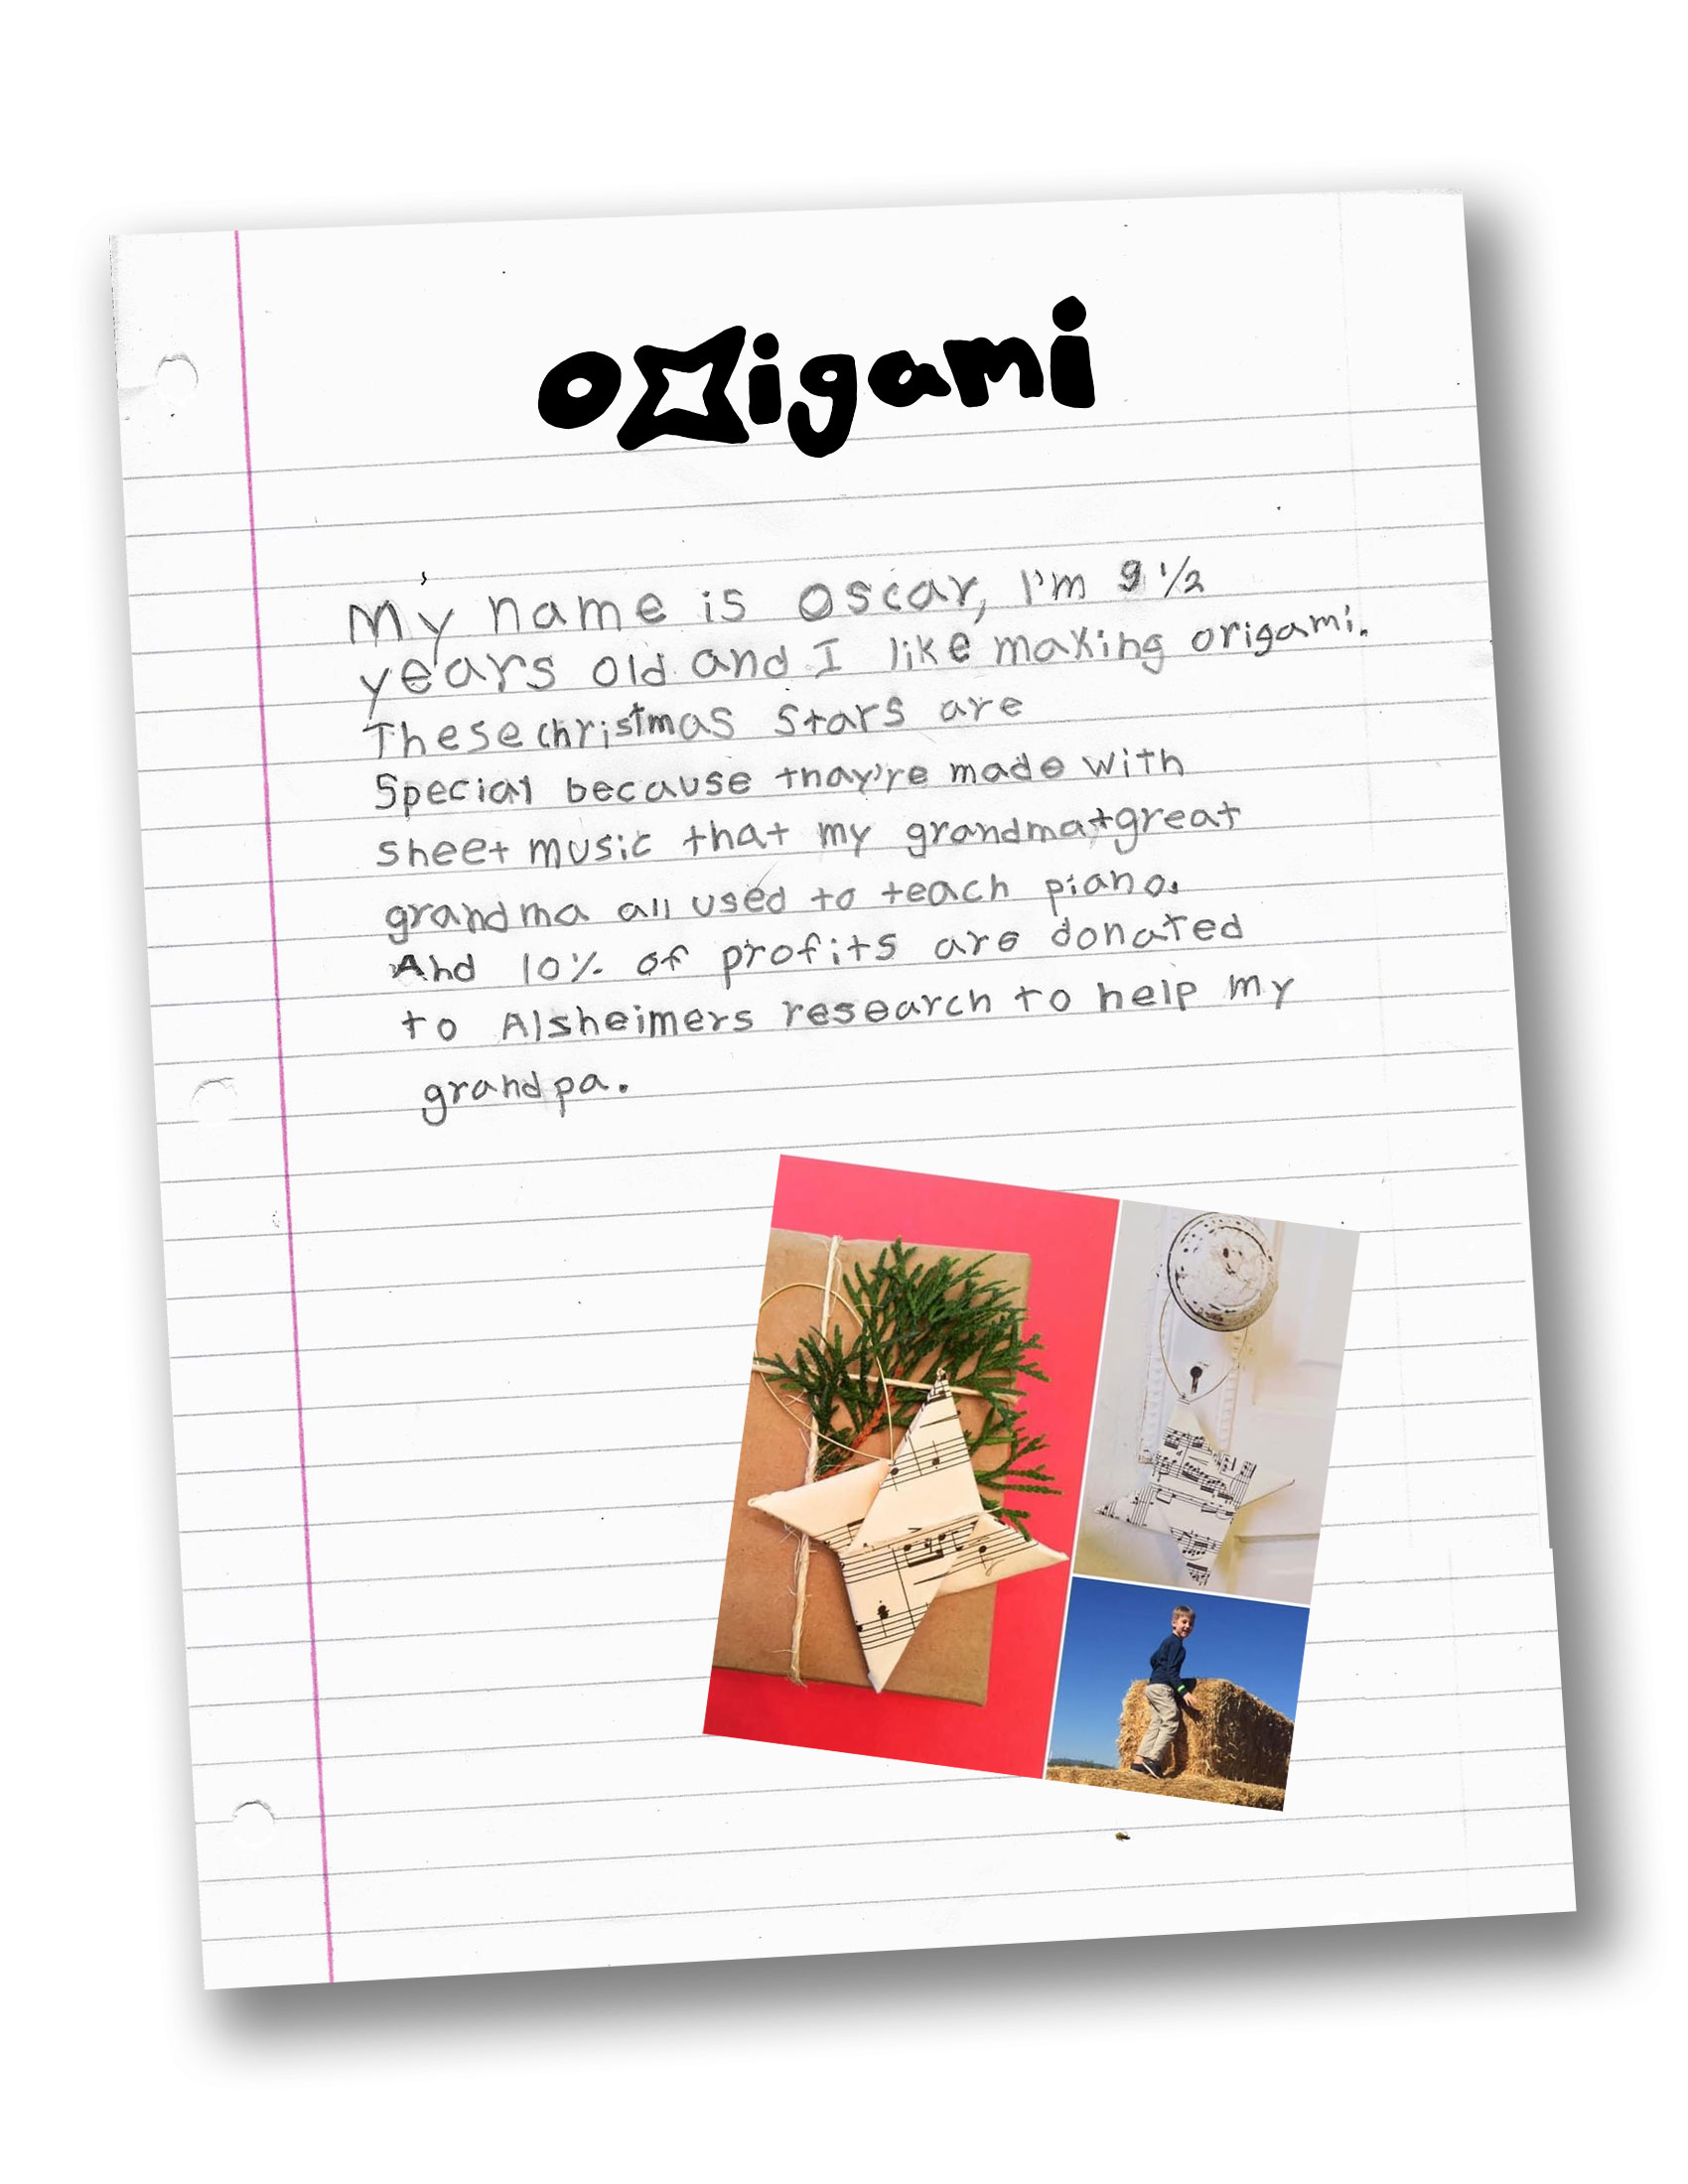 origami
My name is oscar, I'm 9 1/2
years old and I like making origami.
These christmas stars are
Special because thay're made with
sheet music that my grandma+great
grandma all used to teach piano.
And 10% of profits are donated
to Alsheimers research to help my
grandpa.